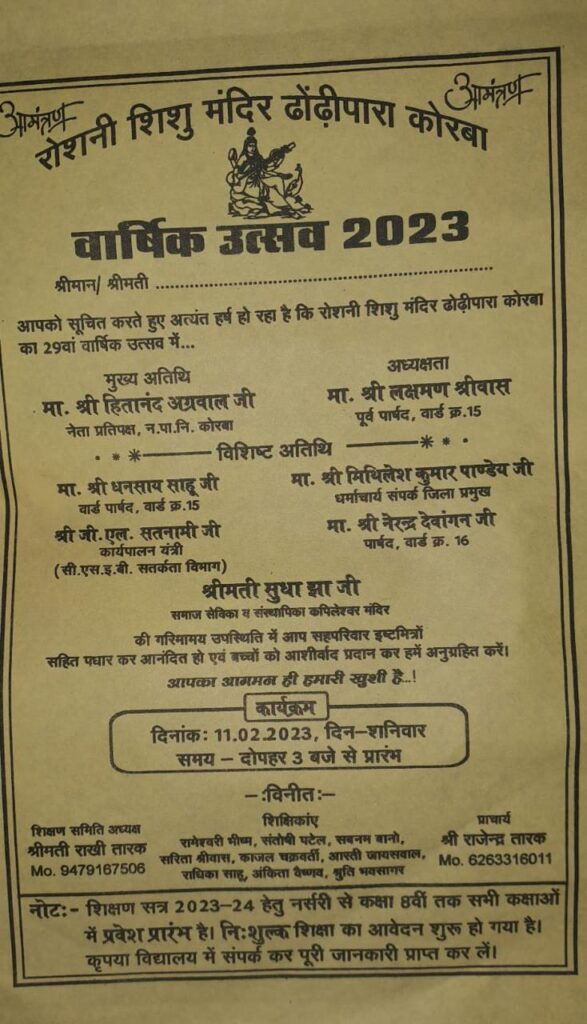 आमंत्रण
आमंत्रण
रोशनी शिशु मंदिर ढोंढ़ीपारा कोरबा
वार्षिक उत्सव 2023
श्रीमान/ श्रीमती ................................................................
आपको सूचित करते हुए अत्यंत हर्ष हो रहा है कि रोशनी शिशु मंदिर ढोढ़ीपारा कोरबा
का 29वां वार्षिक उत्सव में...
मुख्य अतिथि
मा. श्री हितानंद अग्रवाल जी
नेता प्रतिपक्ष, न.पा.नि. कोरबा
अध्यक्षता
मा. श्री लक्षमण श्रीवास
पूर्व पार्षद, वार्ड क्र.15
विशिष्ट अतिथि
मा. श्री धनसाय साहू जी
वार्ड पार्षद, वार्ड क्र.15
मा. श्री मिथिलेश कुमार पाण्डेय जी
धर्माचार्य संपर्क जिला प्रमुख
श्री जी.एल. सतनामी जी
कार्यपालन यंत्री
(सी.एस.इ.बी. सतर्कता विभाग)
मा. श्री नेरन्द्र देवांगन जी
पार्षद, वार्ड क्र. 16
श्रीमती सुधा झा जी
समाज सेविका व संस्थापिका कपिलेश्वर मंदिर
की गरिमामय उपस्थिति में आप सहपरिवार इष्टमित्रों
सहित पधार कर आनंदित हो एवं बच्चों को आशीर्वाद प्रदान कर हमें अनुग्रहित करें।
आपका आगमन ही हमारी खुशी है..!
कार्यक्रम
दिनांक: 11.02.2023, दिन–शनिवार
समय – दोपहर 3 बजे से प्रारंभ
–:विनीत:–
शिक्षण समिति अध्यक्ष
श्रीमती राखी तारक
Mo. 9479167506
शिक्षिकांए
रामेश्वरी भीष्म, संतोषी पटेल, सबनम बानो,
सरिता श्रीवास, काजल चक्रवर्ती, आरती जायसवाल,
राधिका साहू, अंकिता वैष्णव, श्रुति भवसागर
प्राचार्य
श्री राजेन्द्र तारक
Mo. 6263316011
नोट:- शिक्षण सत्र 2023–24 हेतु नर्सरी से कक्षा 8वीं तक सभी कक्षाओं
में प्रवेश प्रारंभ है। नि:शुल्क शिक्षा का आवेदन शुरू हो गया है।
कृपया विद्यालय में संपर्क कर पूरी जानकारी प्राप्त कर लें।